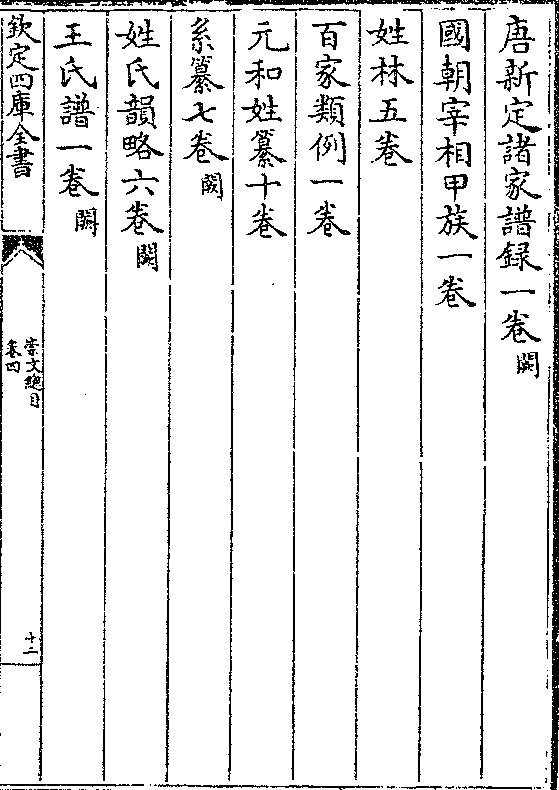 唐新定諸家譜録一卷闕
國朝宰相甲族一卷
姓林五卷
百家類例一卷
元和姓纂十卷
系纂七卷闕
姓氏韻略六卷闕
王氏譜一卷闕
欽定四庫全書
崇文總目
卷四
十二